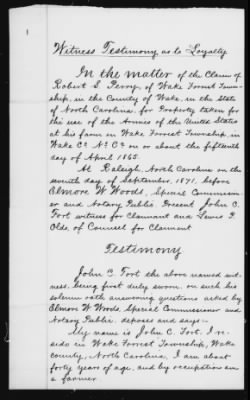 1
Witness Testimony as to Loyalty
In the matter of the Claim of
Robert S. Perry, of Wake Forrest Town-
ship, in the County of Wake, in the State
of North Carolina, for Property taken for
the use of the Armies of the United States
at his farm in Wake Forrest Township in
Wake Co. N. C. on or about the fifteenth
day of April 1865.
At Raleigh, North Carolina on the
seventh day of September, 1871, before
Elmore W Woods, Special Commission-
er and Notary Public. Present John C.
Fort witness for Claimant and Lewis P.
Olds, of Counsel for Claimant
Testimony
John C. Fort the above named wit-
ness, being first duly sworn, on such his
solemn oath answering questions asked by
Elmore W Woods, Special Commissioner and
Notary Public, deposes and says:-
My name is John C. Fort. I re-
side in Wake Forrest Township, Wake
county, North Carolina, I am about
forty years of age, and by occupation am
a farmer